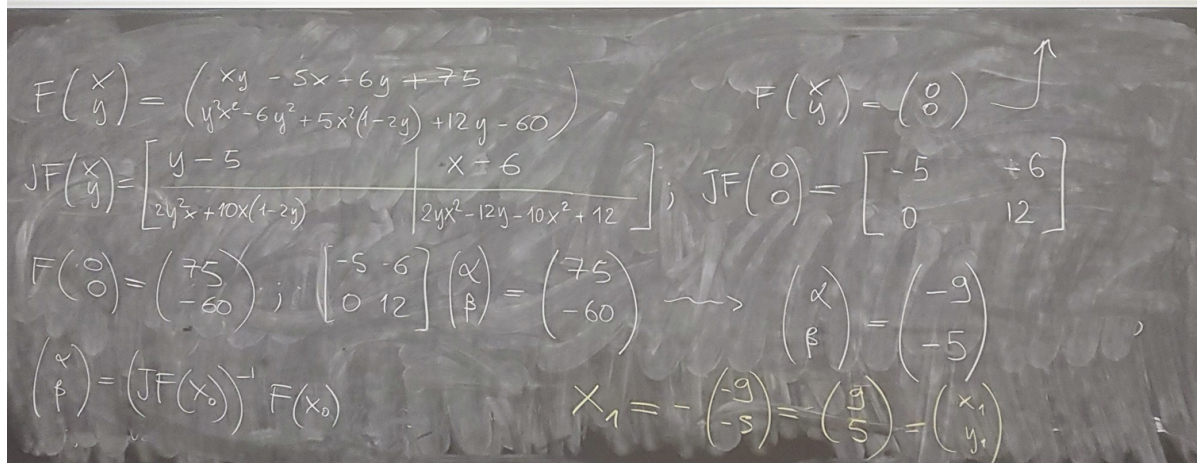 F(x y) = (xy - 5x + 6y + 75 y²x² - 6y² + 5x²(1-2y) + 12y - 60) F(x y) = (0 0)
JF(x y) = [y - 5 x - 6 2y²x + 10x(1-2y) 2yx² - 12y - 10x² + 12]; JF(0 0) = [-5 -6 0 12]
F(0 0) = (75 -60); [-5 -6 0 12] (α β) = (75 -60) ⇝ (α β) = (-9 -5)
(α β) = (JF(x₀))⁻¹ F(x₀) X₁ = -(-9 -5) = (9 5) = (x₁ y₁)